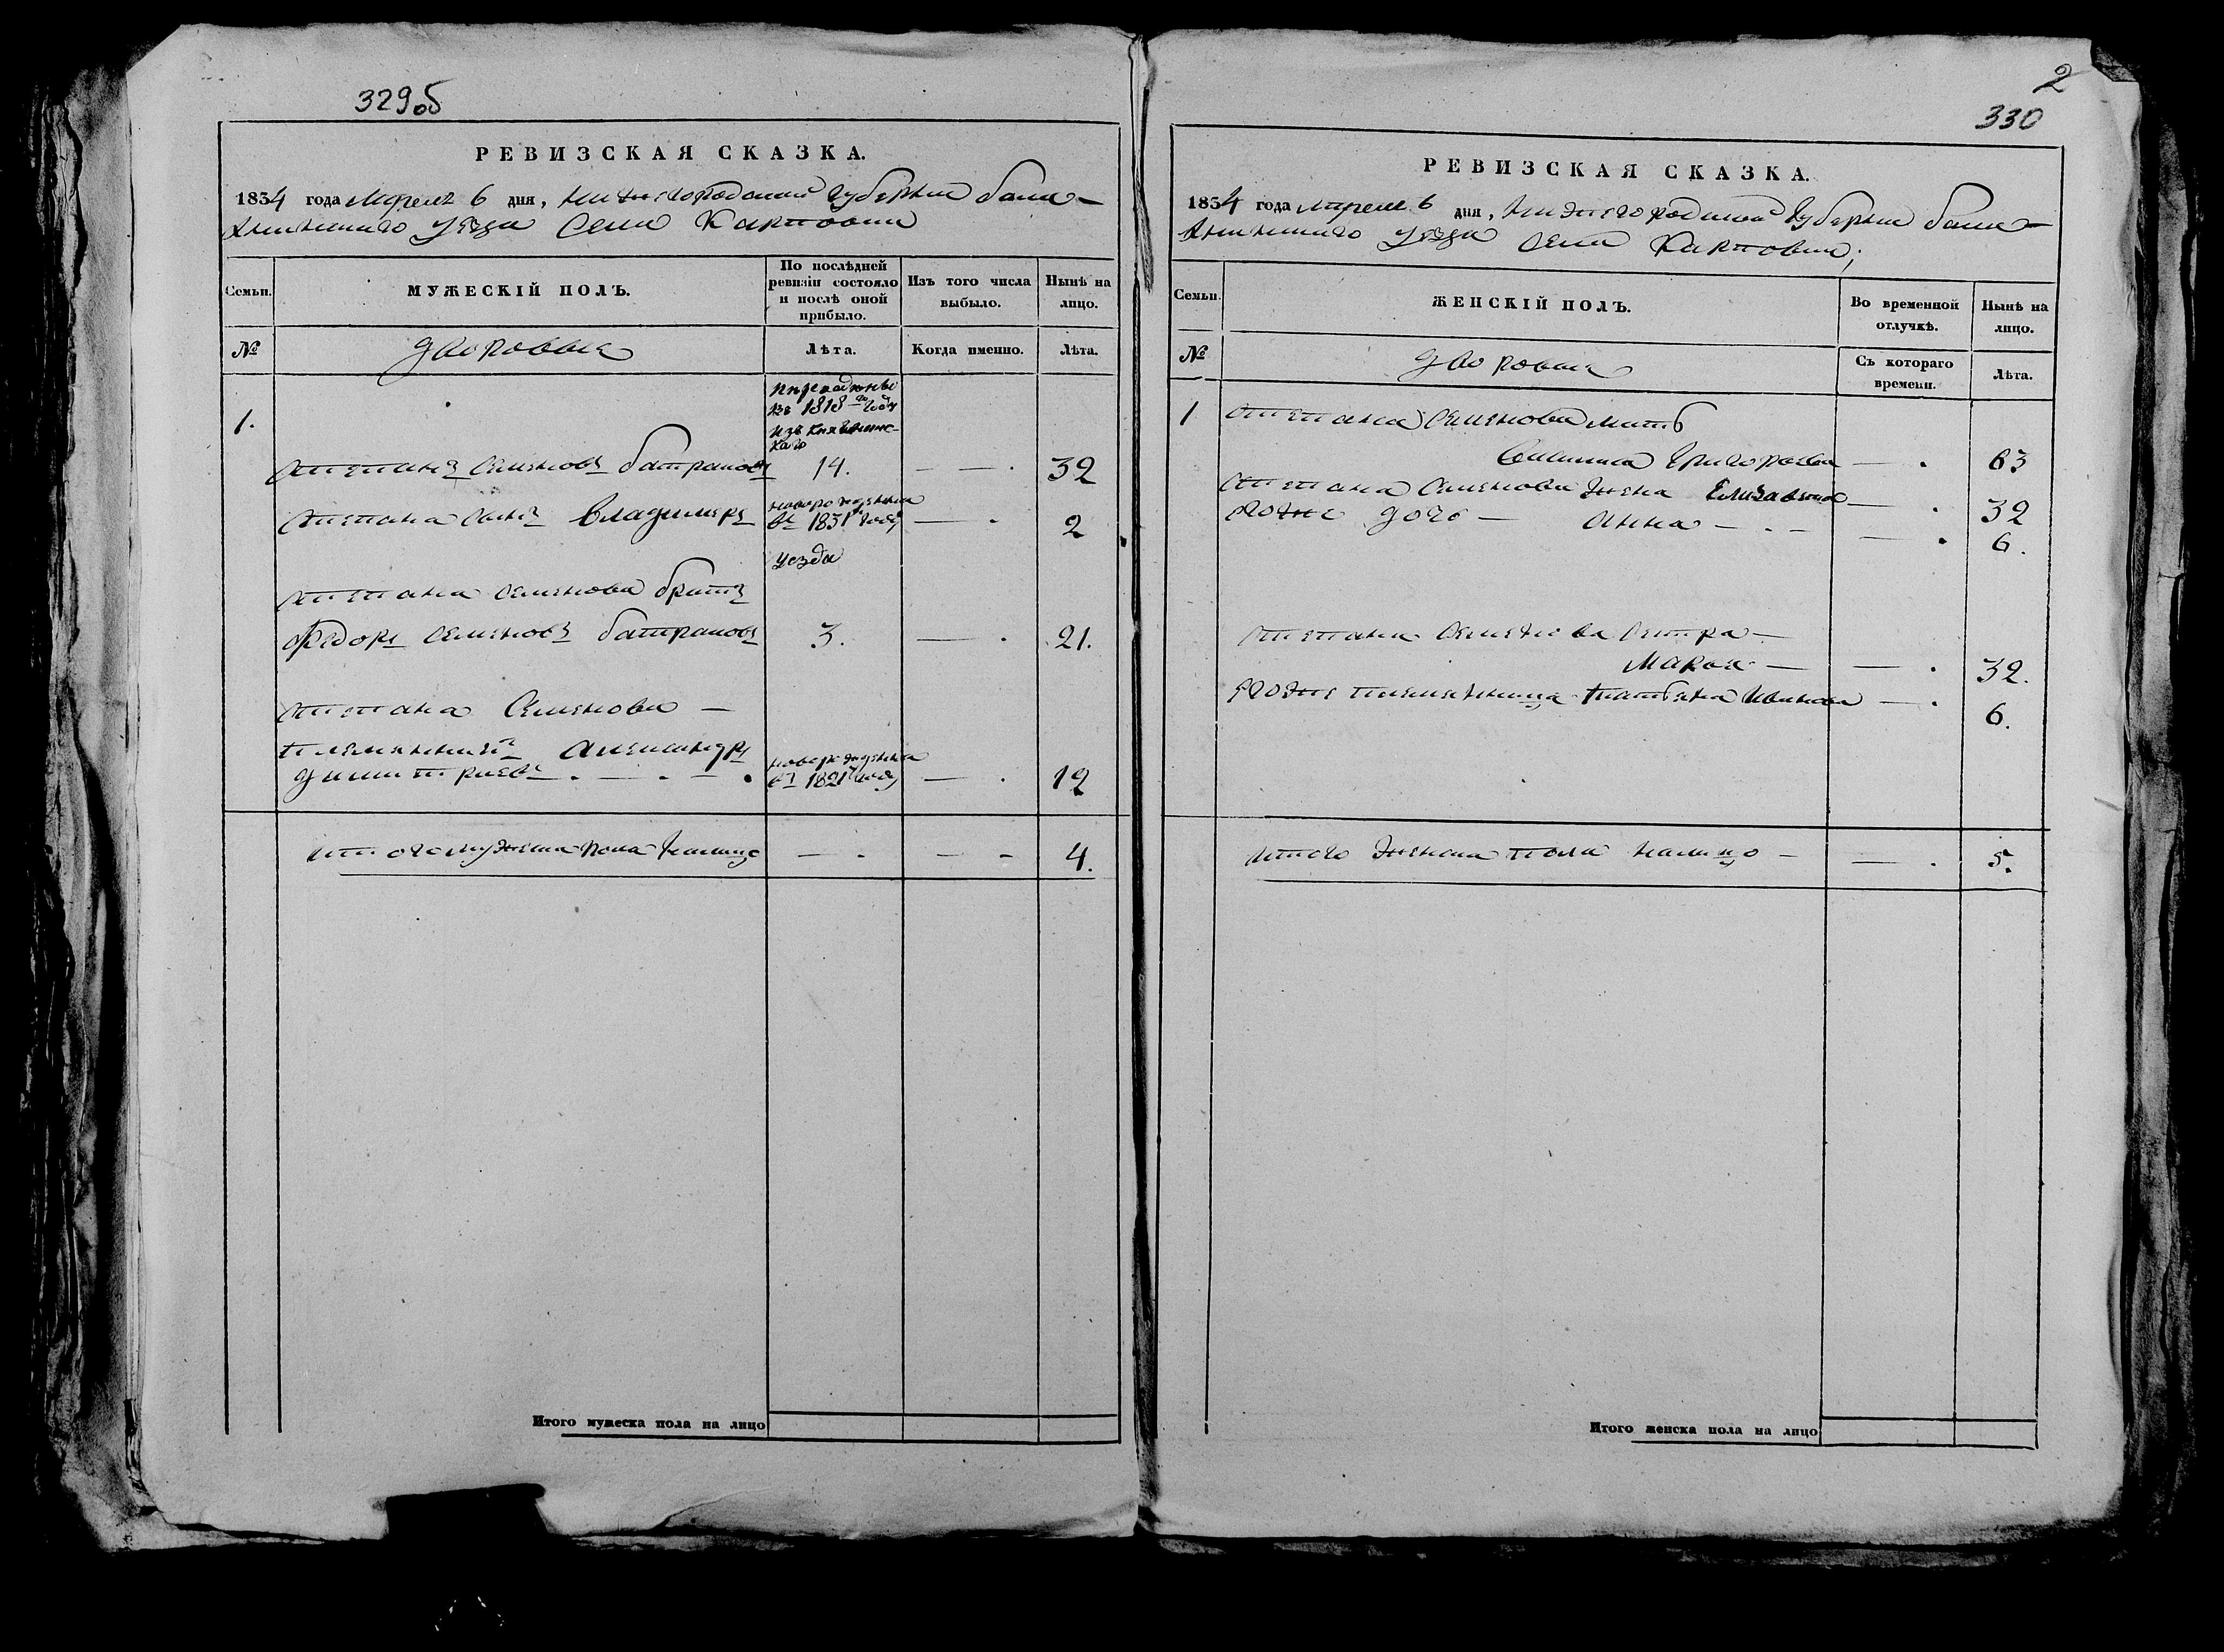 329об
РЕВИЗСКАЯ СКАЗКА.
1834 года Апреля 6 дня, Нижегородской губернии Бала-
хнинскаго уезда Села Карпова
Семьи.
МУЖЕСКІЙ ПОЛЪ.
По послѣдней ревизіи состояло и послѣ оной прибыло.
Изъ того числа выбыло.
Нынѣ на лицо.
№
дворовыя
Лѣта.
Когда именно.
Лѣта.
въ 1818 году
изъ Княгининс-
каго
1.
Степанъ Семеновъ 14. 32
Степана сынъ Владимеръ въ 1831 году 2
уезда
Степана Семенова братъ
Федоръ Семеновъ 3. 21.
Степана Семенова —
племянникъ Александръ
Дмитриевъ въ 1821 году 12
Итого мужеска пола налицо 4.
Итого мужеска пола на лицо
2
330
РЕВИЗСКАЯ СКАЗКА.
1834 года Апреля 6 дня, Нижегородской губернии Бала-
хнинскаго уезда Села Карпова,
Семьи.
ЖЕНСКІЙ ПОЛЪ.
Во временной отлучкѣ.
Нынѣ на лицо.
№
дворовыя
Съ котораго времени.
Лѣта.
1 Степана Семенова мать
Григорьева 63
Степана Семенова жена Елизавета 32
его же дочь — Анна 6.
Степана Семенова сестра —
Марья — 32.
его же племянница Татьяна Иванова 6.
Итого женска пола налицо — 5.
Итого женска пола на лицо